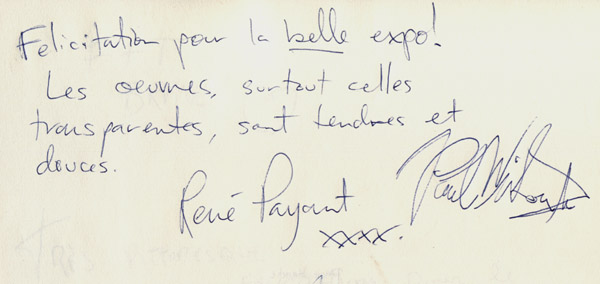 Felicitation pour la belle expo!
Les oeuvres, surtout celles
transparentes, sont tendres et
douces.
René Payant
xxxx.
Paul